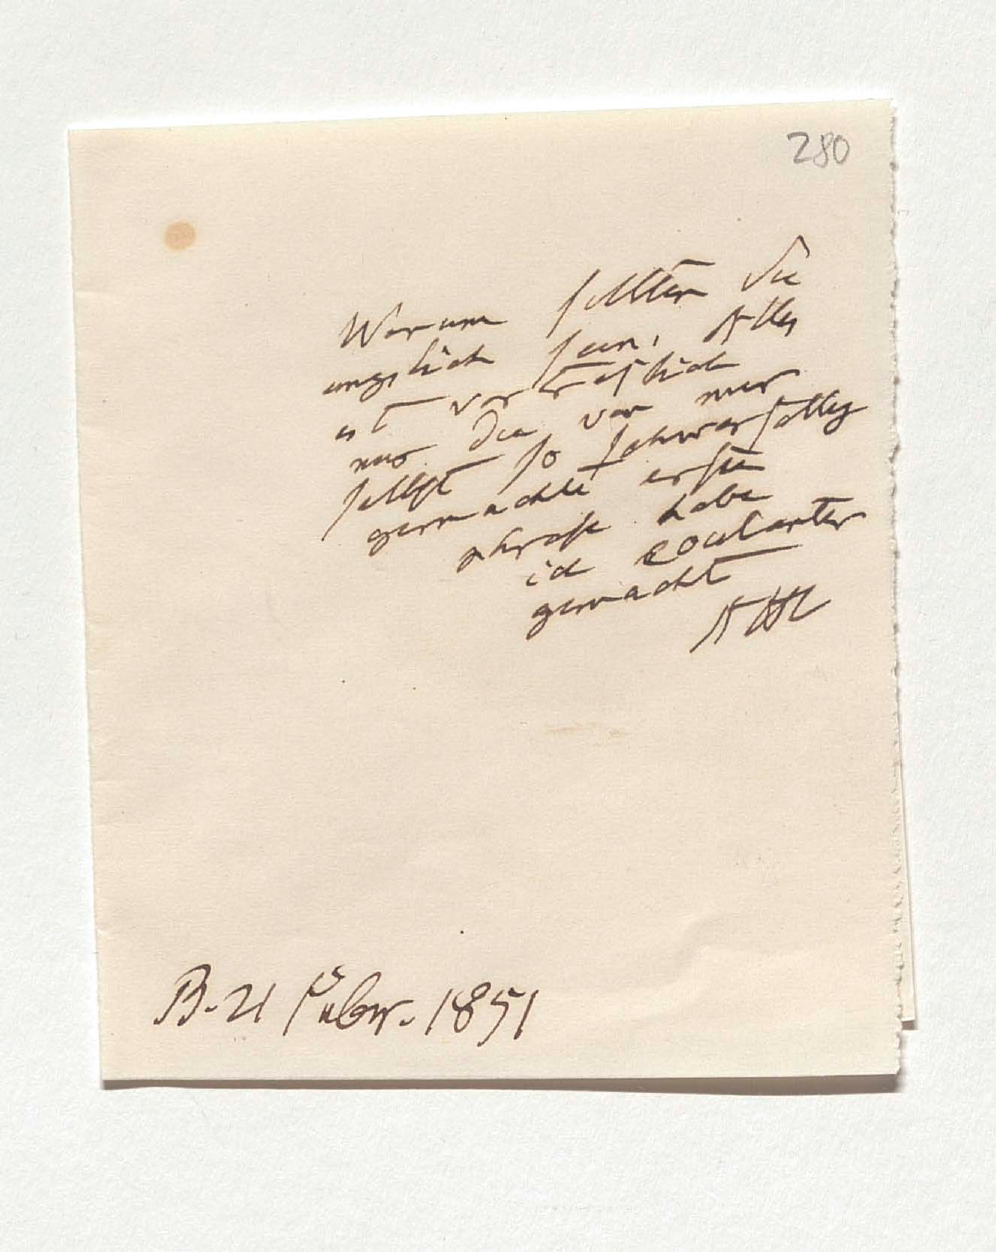 280
Warum sollten Sie
ängstlich sein, Alles
ist vortreflich
nur die von mir
selbst so schwerfällig
gemachte erste
phrase habe
ich coulanter
gemacht
AHt
B. 21 Febr. 1851